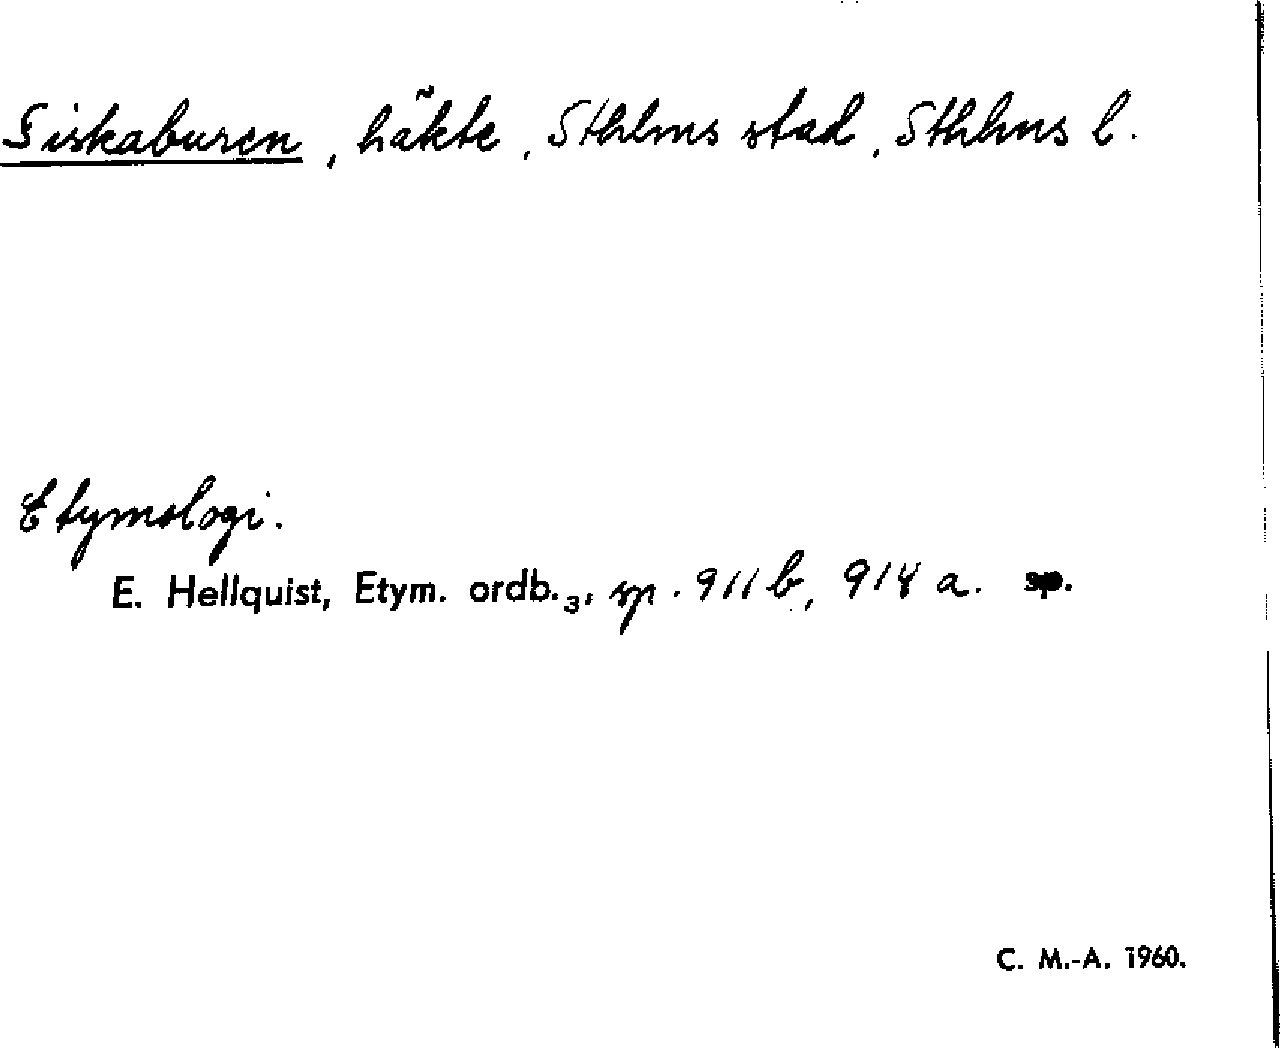 Siskaburen, häkte, Sthlms stad, Sthlms l.
Etymologi.
E. Hellquist, Etym. ordb.3, sp. 911 b, 914 a. sp.
C. M.-A. 1960.